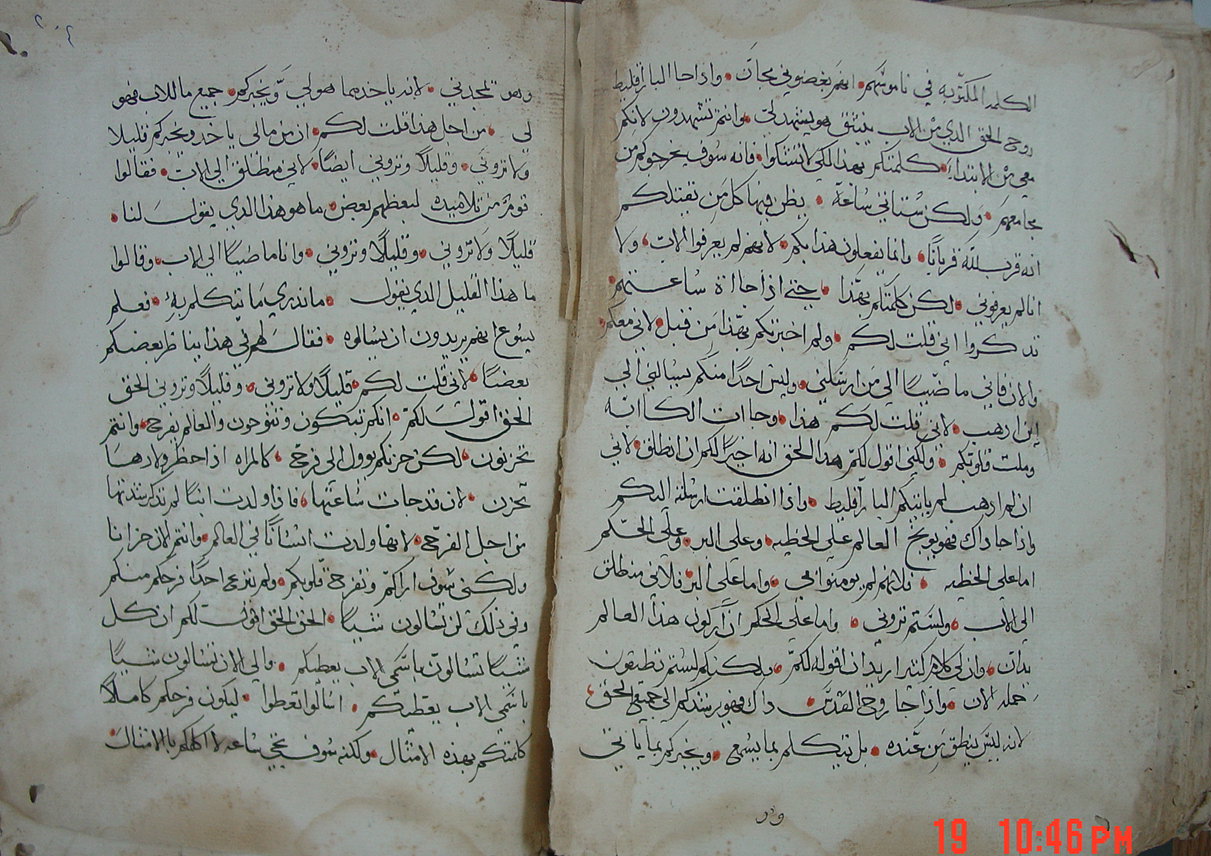 الكلمه المكتوبه في ناموسهم انهم بغضوني مجانًا واذا جا البارقليط
روح الحق الذي من الاب ينبثق هو يشهد لي وانتم تشهدون لانكم
معي من الابتداء كلمتكم بهذا لكي لا تشكوا فانه سوف يخرجوكم من
مجامعهم ولكن ستاتي ساعة يظن فيها كل من يقتلكم
انه قرب لله قربانًا وانما يفعلون هذا بكم لانهم لم يعرفوا الاب ولا
انا لم يعرفوني لكن كلمتكم بهذا حتى اذا جاات ساعتهم
تدكروا اني قلت لكم ولم اخبركم بهذا من قبل لاني معكم
والان فاني ماضيًا الى من ارسلني وليس احدًا منكم يسالني الى
اين اذهب لاني قلت لكم هذا وجاات الكاابه
وملت قلوبكم ولكني اقول لكم هذا الحق انه اخيرًا لكم ان انطلق لاني
ان لم اذهب لم ياتيكم البارقليط واذا انطلقت ارسلته اليكم
واذا جا داك فهو يوبخ العالم على الخطيه وعلى البر وعلى الحكم
اما على الخطيه فلانهم لم يومنوا بي واما على البر فلاني منطلق
الى الاب ولستم تروني واما على الحكم ان اركون هذا العالم
يدان وان لي كلام كتير اريد ان اقوله لكم ولكنكم لستم تطيقون
حمله الان واذا جا روح القدس داك فهو يرشدكم الى جميع الحق
لانه ليس ينطق من عنده بل يتكلم بما يسمع ويخبركم بما ياتي
وهو
وهو يمجدني لانه ياخد مما هو لي ويخبركم جميع ما للاب فهو
لي من اجل هذا قلت لكم ان من مالي ياخد ويخبركم قليلا
ولا تروني وقليلًا وتروني ايضًا لاني منطلق الى الاب فقالوا
قوم من تلاميذه لبعضهم بعض ما هو هذا الذي يقول لنا
قليلًا ولا تروني وقليلًا وتروني وانا ماضيًا الى الاب وقالوا
ما هذا القليل الذي يقول ما ندري ما يتكلم به فعلم
يسوع انهم يريدون ان يسالوه فقال لهم في هذا يناظر بعضكم
بعضًا لاني قلت لكم قليلًا ولا تروني وقليلًا وتروني الحق
الحق اقول لكم انكم تبكون وتنوحون والعالم يفرح وانتم
تحزنون لكن حزنكم يوول الى فرح كالمراه اذا حضر ولادها
تحزن لان قد جات ساعتها فاذا ولدت ابنًا لم تدكر شدتها
من اجل الفرح لانها ولدت انسانًا في العالم وانتم الان حزانا
ولكني سوف اراكم وتفرح قلوبكم ولم ينزع احدًا فرحكم منكم
وفي ذلك لن تسالون شيًا الحق الحق اقول لكم ان كل
شيًا تسالون باسمي الاب يعطيكم والى الان لم تسالون شيًا
باسمي الاب يعطيكم اسالوا تعطوا ليكون فرحكم كاملًا
كلمتكم بهذه الامثال ولكنه سوف تجي ساعه لا اكلمكم بالامثال
19 10:46 PM